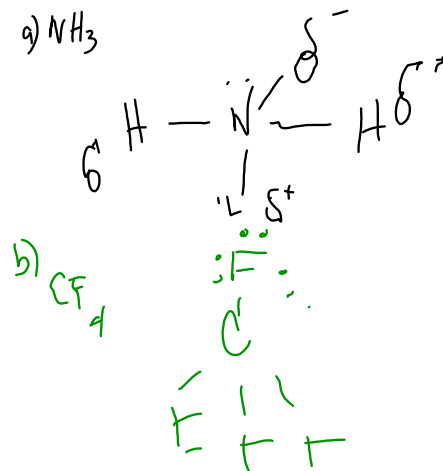 a) NH3
δ-
H — N̈ — H δ+
δ
δ+
b) CF4
F
C
F F F